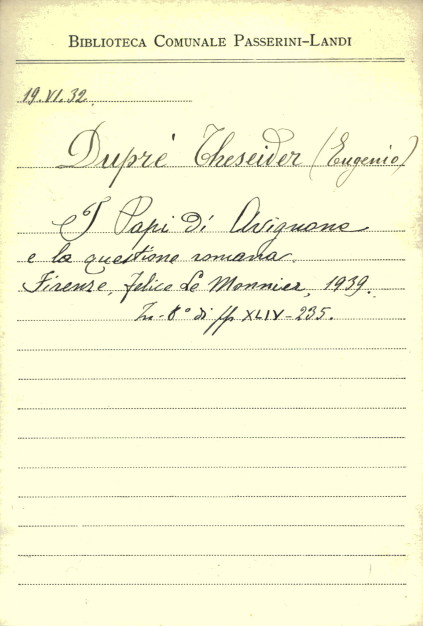 BIBLIOTECA COMUNALE PASSERINI-LANDI
19.VI.32.
Dupré Theseider (Eugenio)
I Papi di Avignone
e la questione romana.
Firenze, Felice Le Monnier, 1939.
In-8° di pp XLIV-235.